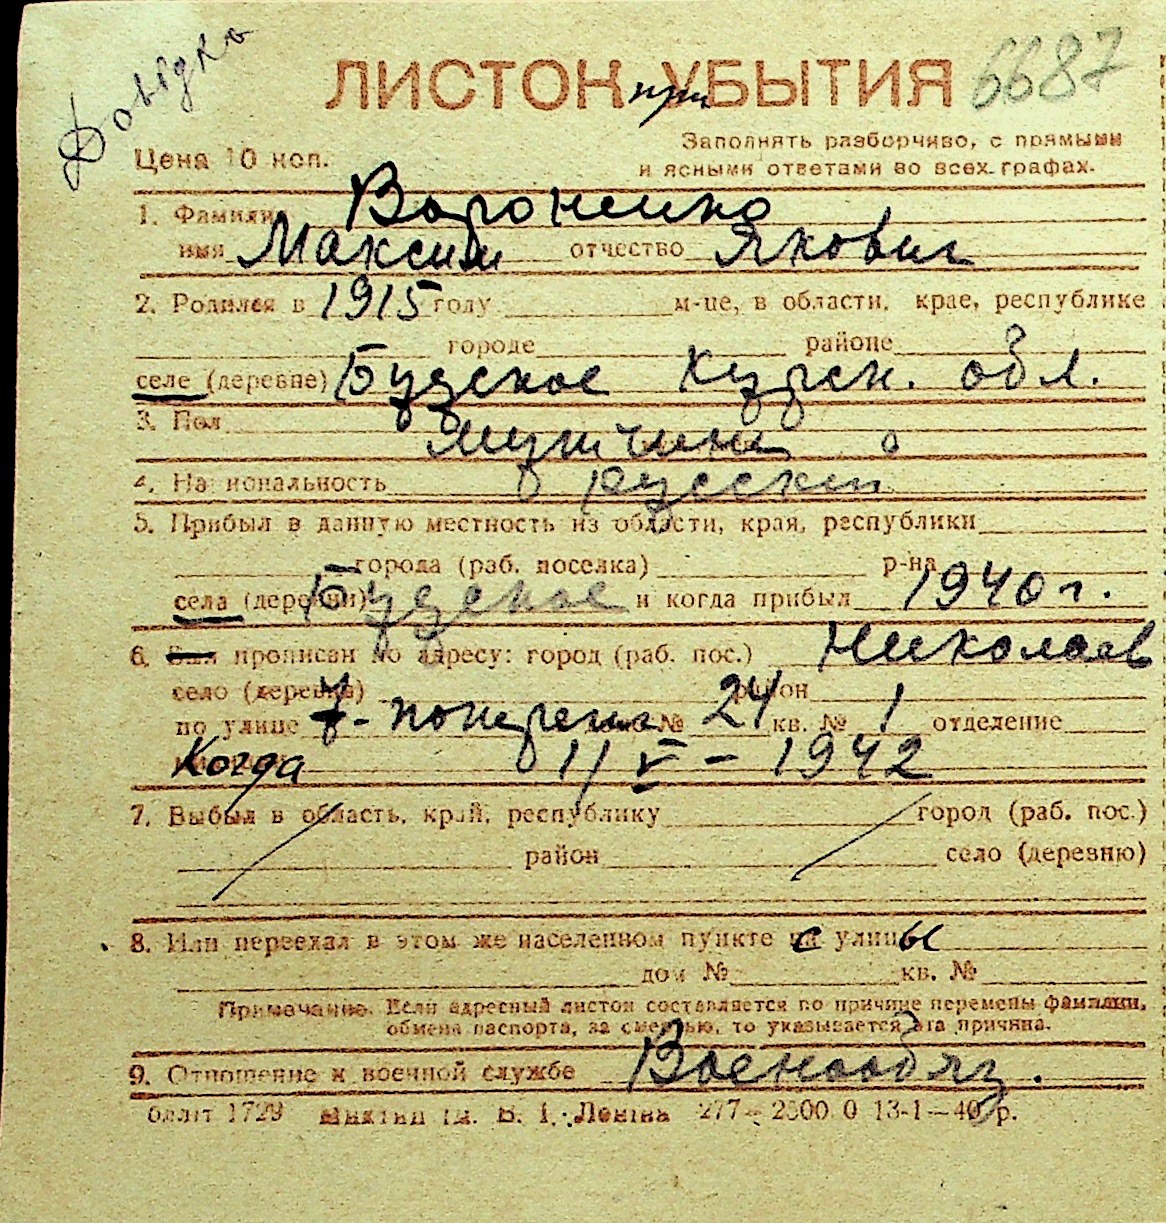 Довідка
ЛИСТОК при УБЫТИЯ 6687
Цена 10 коп.
Заполнять разборчиво, с прямыми
и ясными ответами во всех графах.
1. Фамилия Вороненко
имя Максим отчество Якович
2. Родился в 1915 году м-це, в области, крае, республике
городе районе
селе (деревне) Будское Курск. обл.
3. Пол мужчина
4. Национальность русский
5. Прибыл в данную местность из области, края, республики
города (раб. поселка) р-на
села (деревни) Будское и когда прибыл 1940 г.
6. Был прописан по адресу: город (раб. пос.) Николаев
село (деревня) район
по улице 7-поперечн дом № 24 кв. № 1 отделение
Когда 11/V – 1942
7. Выбыл в область, край, республику город (раб. пос.)
район село (деревню)
8. Или переехал в этом же населенном пункте с улицы
дом № кв. №
Примечание. Если адресный листок составляется по причине перемены фамилии,
обмена паспорта, за смертью, то указывается эта причина.
9. Отношение к военной службе Военнообяз.
1729 В. І. Леніна 277 – 2500.0 13-1—40 р.